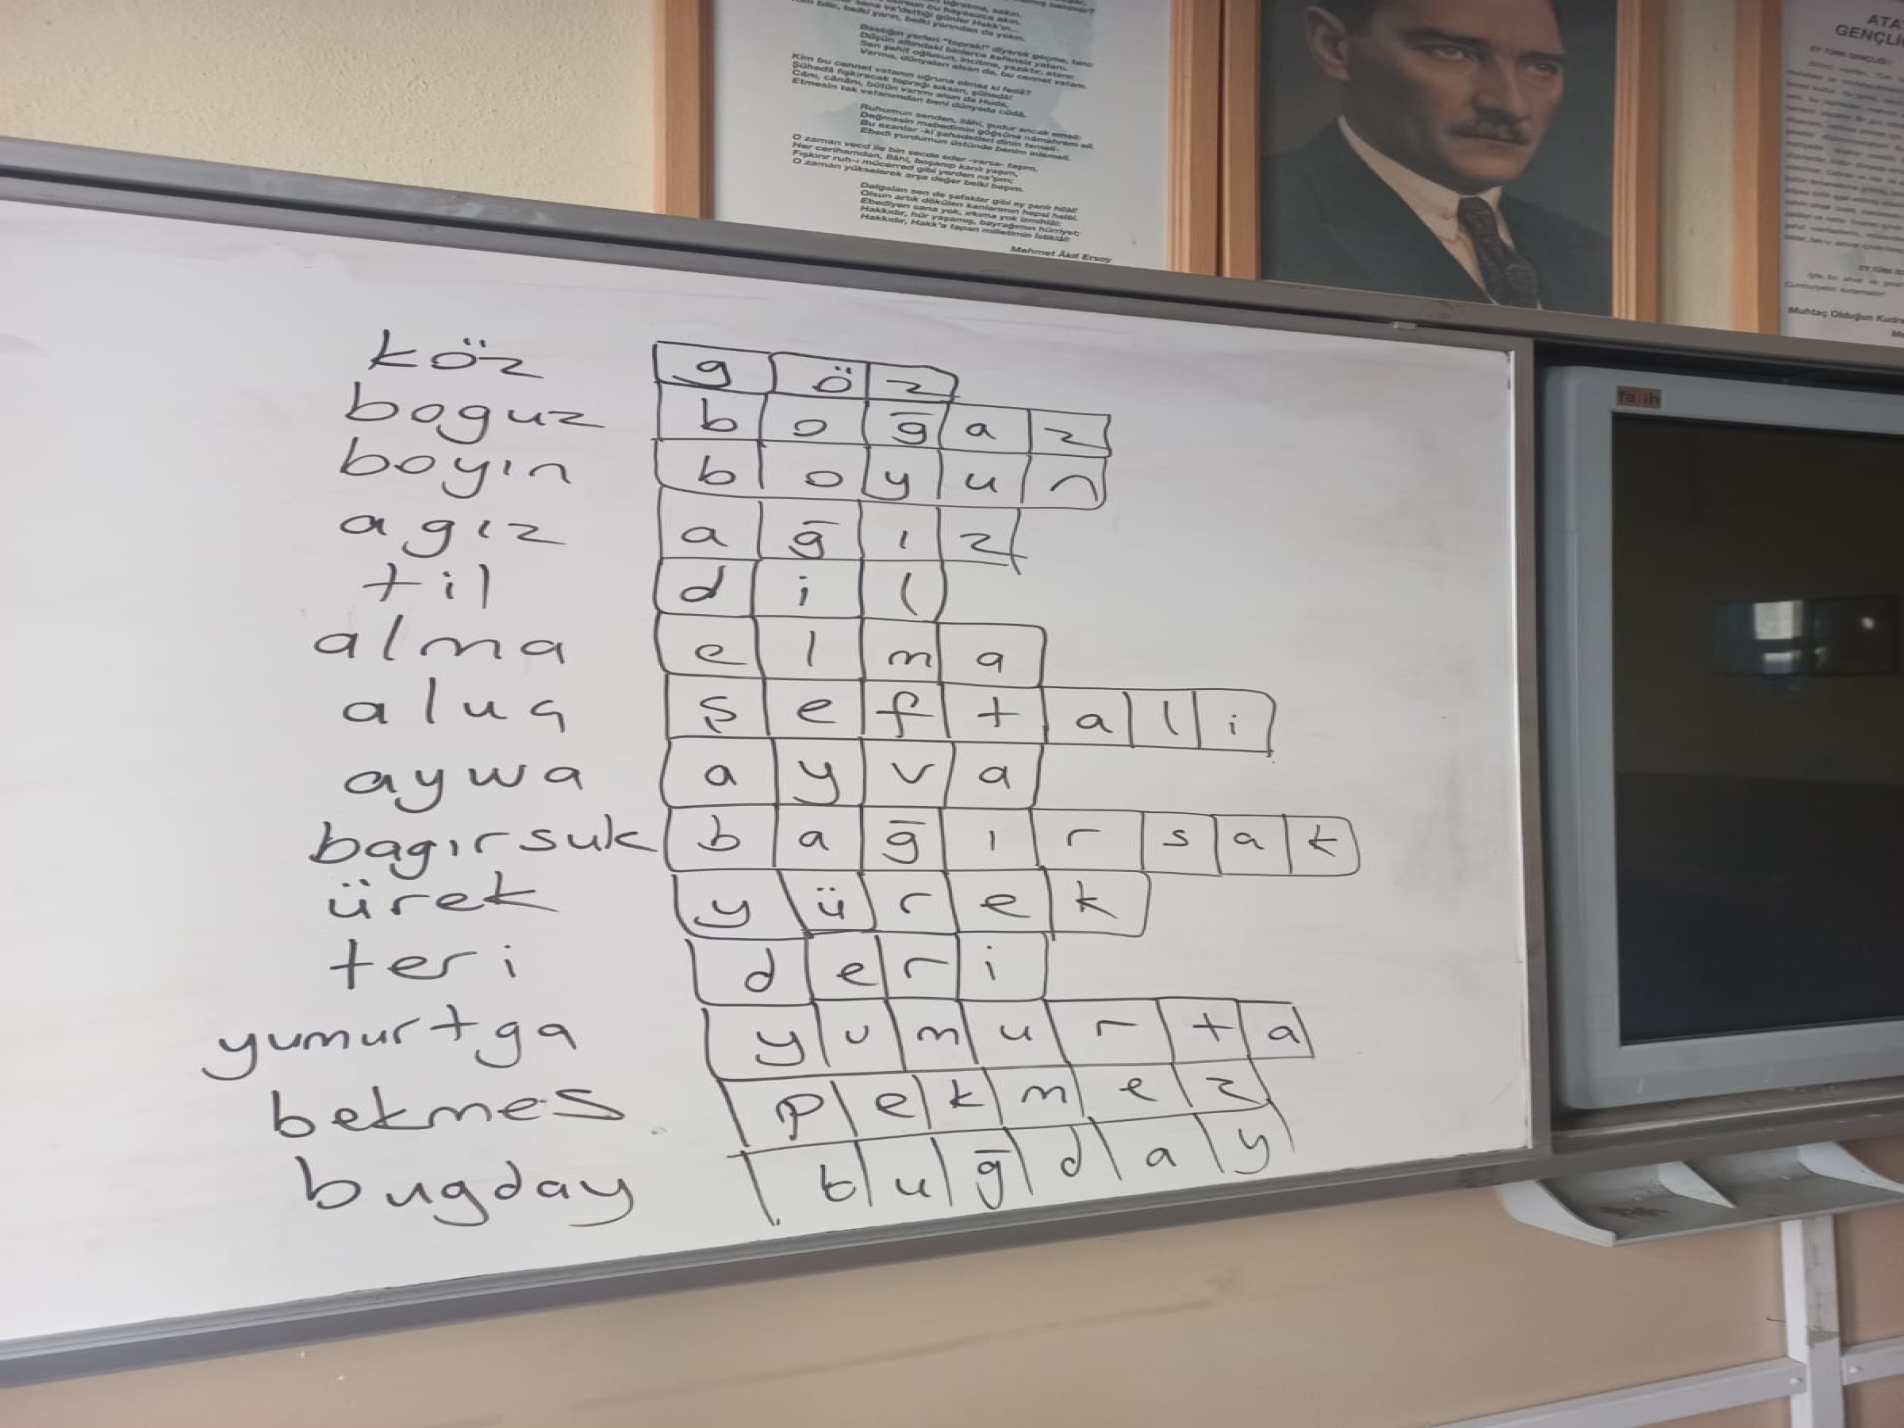 Düşün altındaki binlerce kefensiz yatanı.
Sen şehit oğlusun, incitme, yazıktır, atanı:
Verme, dünyaları alsan da, bu cennet vatanı.
Kim bu cennet vatanın uğruna olmaz ki fedâ?
Şühedâ fışkıracak toprağı sıksan, şühedâ!
Cânı, cânânı, bütün varımı alsın da Huda,
Etmesin tek vatanımdan beni dünyada cüdâ.
Ruhumun senden, İlâhi, şudur ancak emeli:
Değmesin mabedimin göğsüne nâmahrem eli.
Bu ezanlar -ki şahadetleri dinin temeli-
Ebedi yurdumun üstünde benim inlemeli.
O zaman vecd ile bin secde eder -varsa- taşım,
Her cerihamdan, İlâhi, boşanıp kanlı yaşım,
Fışkırır ruh-ı mücerred gibi yerden na'şım;
O zaman yükselerek arşa değer belki başım.
Dalgalan sen de şafaklar gibi ey şanlı hilâl!
Olsun artık dökülen kanlarımın hepsi helâl.
Ebediyen sana yok, ırkıma yok izmihlâl:
Hakkıdır, hür yaşamış, bayrağımın hürriyet;
Hakkıdır, Hakk'a tapan milletimin İstiklâl!
Mehmet Âkif Ersoy
ATA
GENÇLİ
EY TÜRK GENÇLİĞİ!
Muhtaç Olduğun Kudre
fatih
köz göz
boguz boğaz
boyın boyun
agız ağız
til dil
alma elma
aluç şeftali
aywa ayva
bagırsuk bağırsak
ürek yürek
teri deri
yumurtga yumurta
bekmes pekmez
bugday buğday